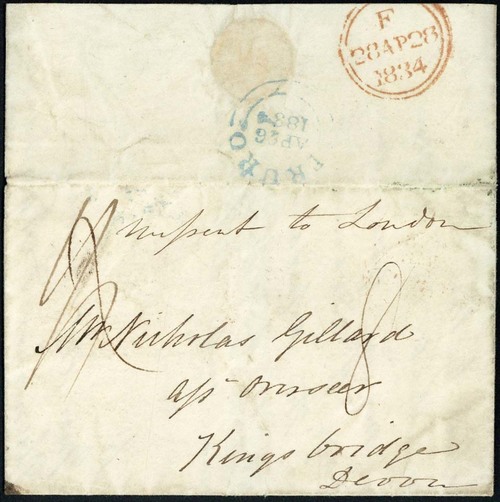 F
28AP28
1834
TRURO
AP 26
183
Missent to London
8
Mr Nicholas Gillard
Overseer
Kingsbridge
Devon